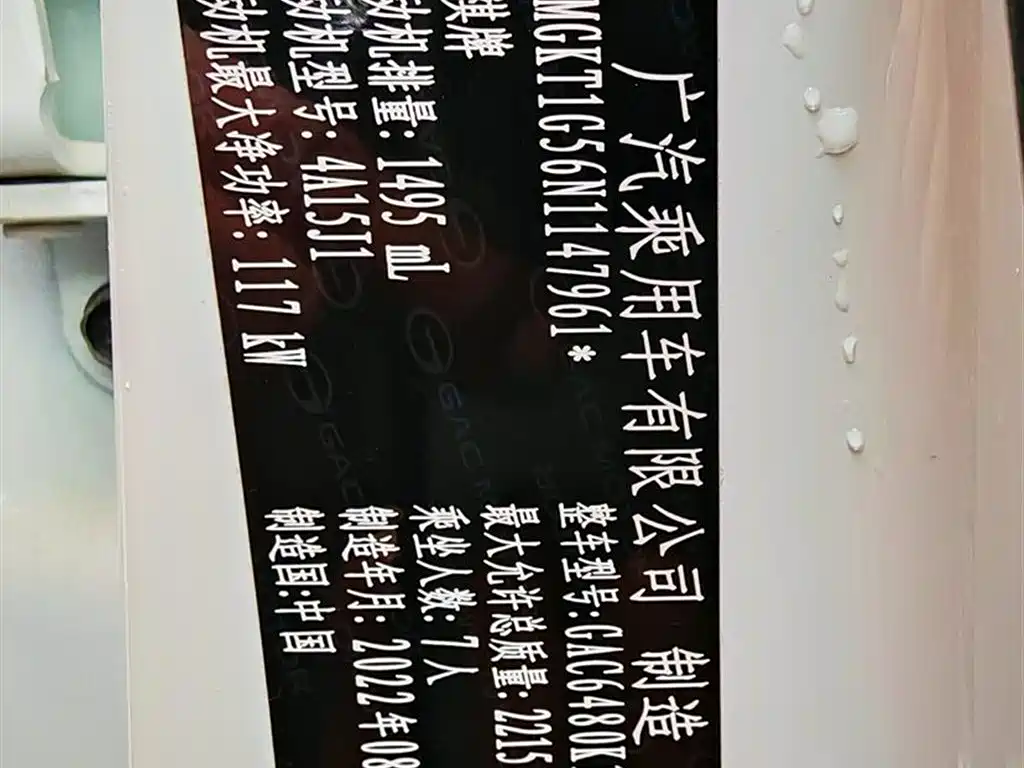 广汽乘用车有限公司 制造
MGKT1G56N1147961*
祺牌 整车型号:GAC6480K
发动机排量: 1495 mL 最大允许总质量: 2215
发动机型号: 4A15J1 乘坐人数: 7人
发动机最大净功率: 117 kW 制造年月: 2022年08
制造国:中国